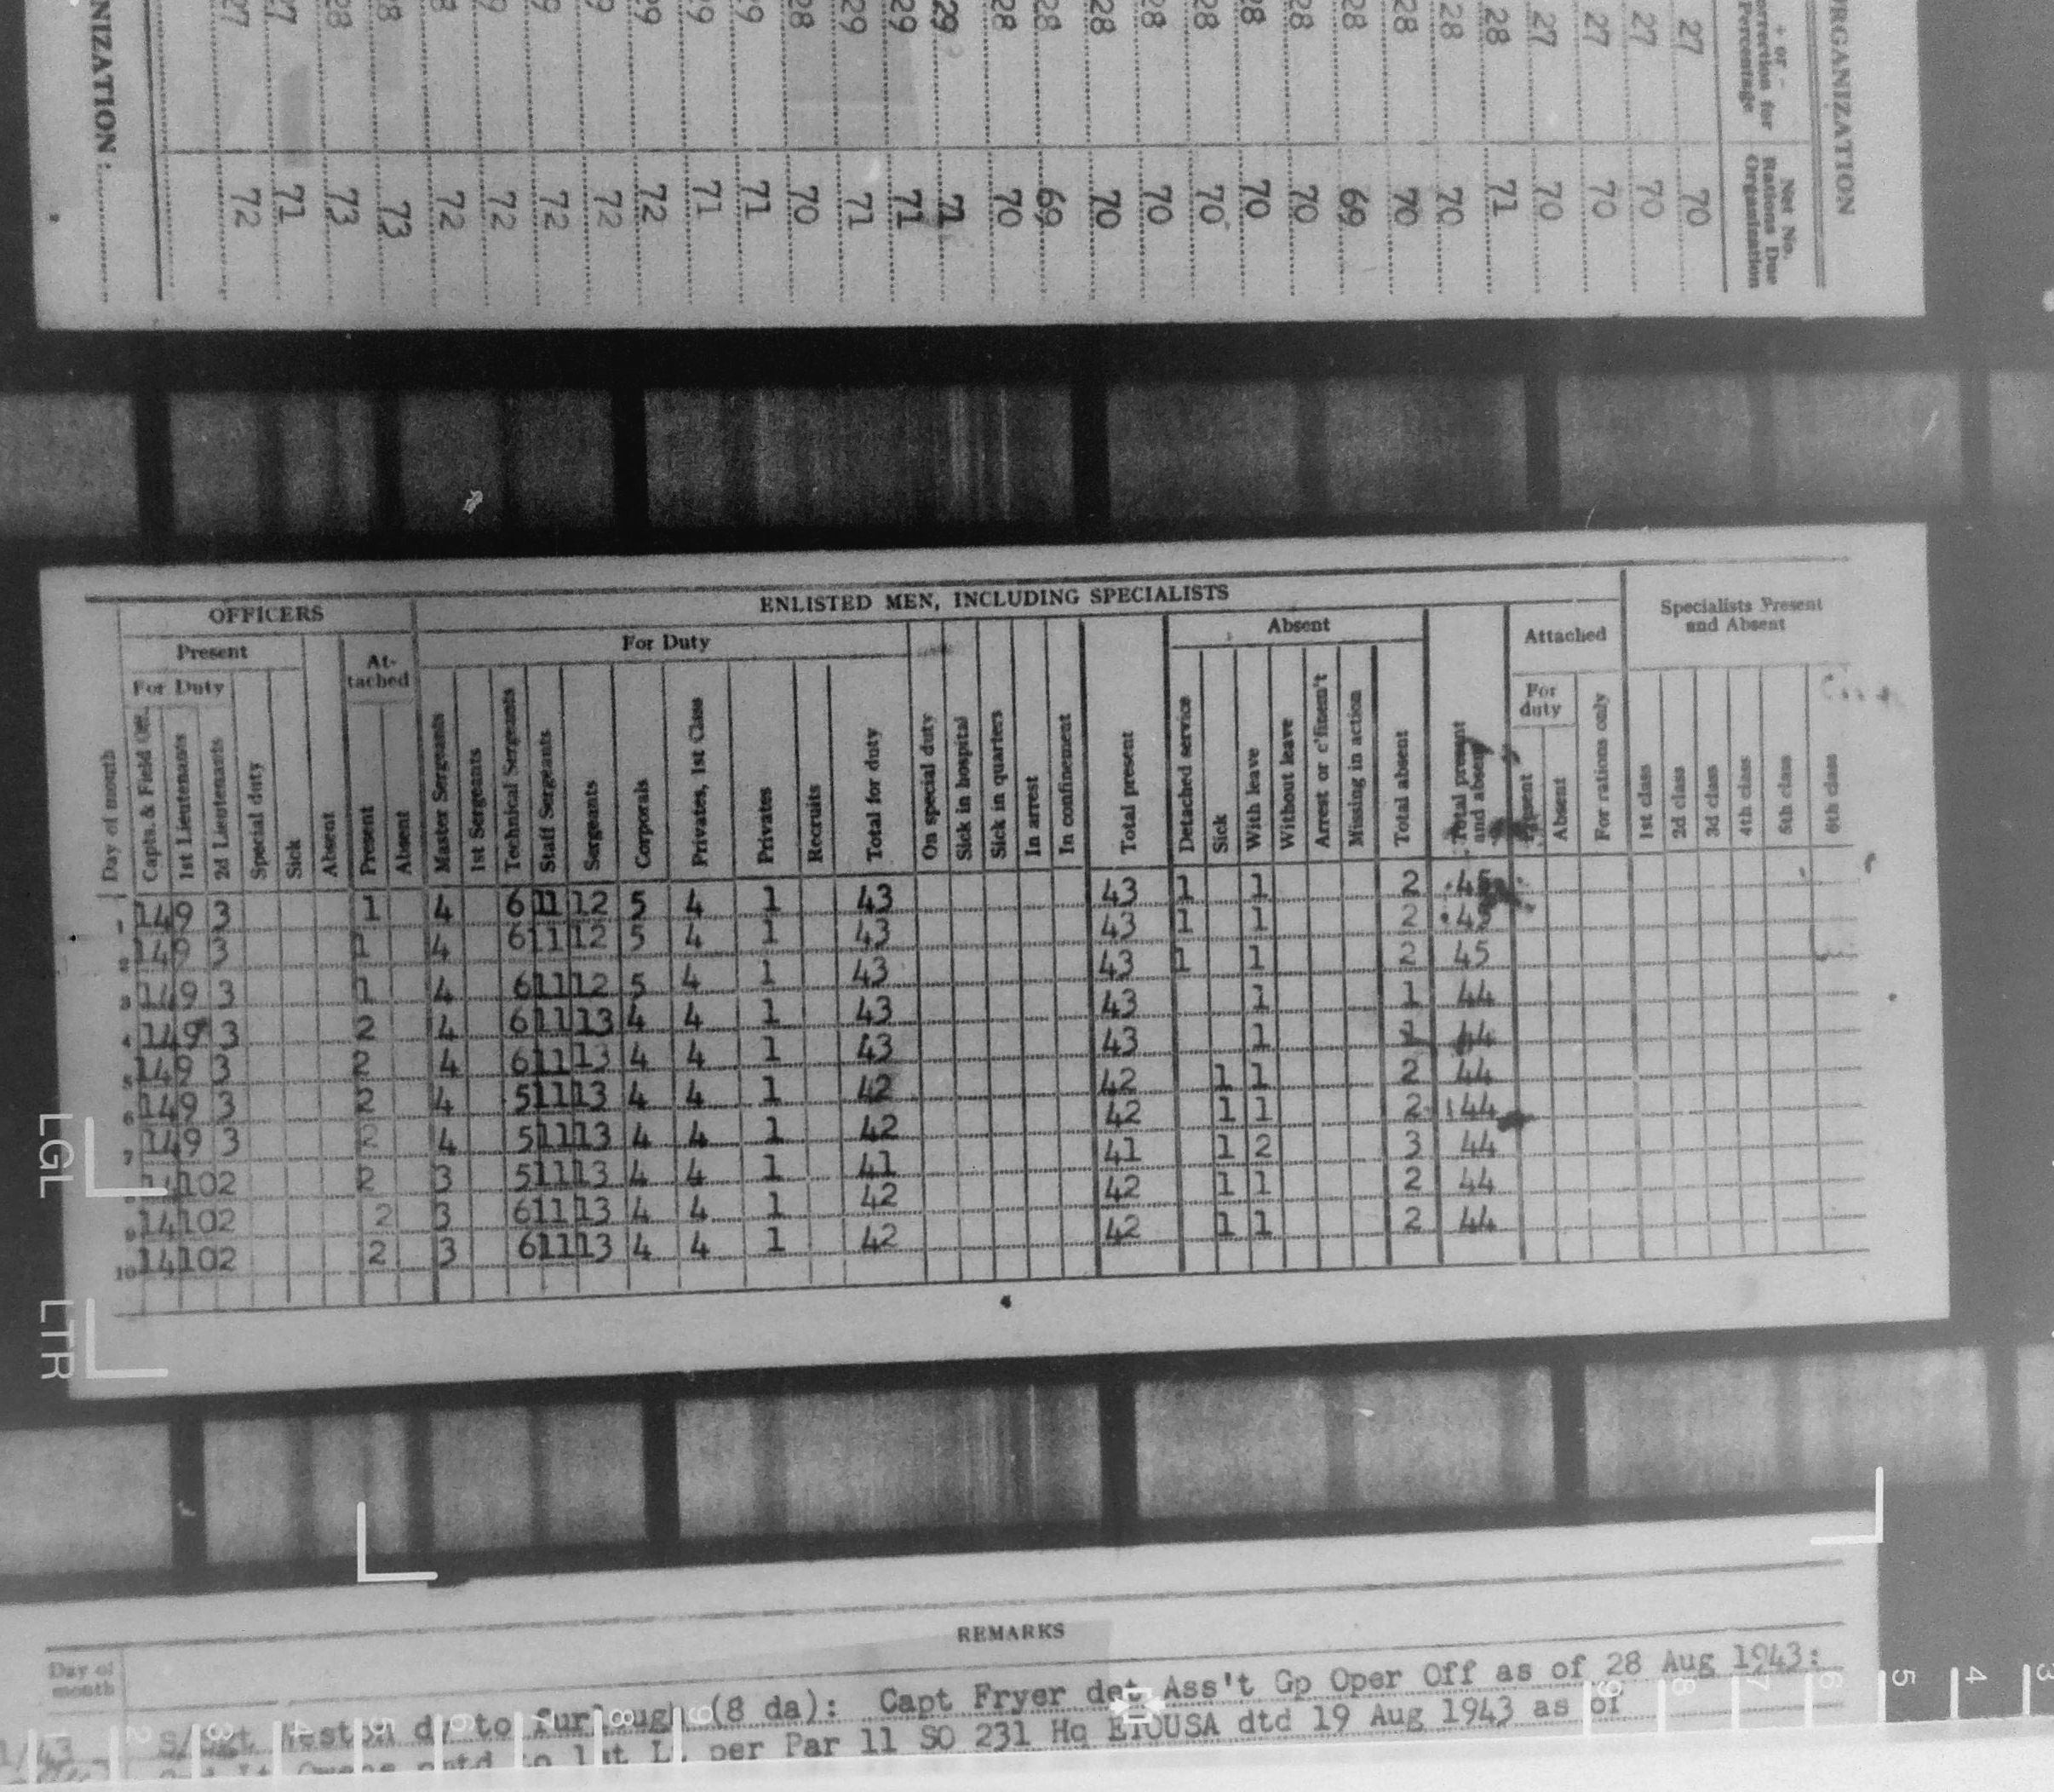 NIZATION:
RGANIZATION
+ or -
orrection for
Percentage
Net No.
Rations Due
Organization
27 27 28 8 8 9 9 9 29 29 29 28 29 29 29 28 28 28 28 28 28 28 28 28 28 28 27 27 27 27
72 71 73 73 72 72 72 72 72 71 71 70 71 71 71 70 69 70 70 70 70 70 69 70 70 71 70 70 70 70
OFFICERS
ENLISTED MEN, INCLUDING SPECIALISTS
Specialists Present
and Absent
Present
At-
tached
For Duty
Absent
Attached
For Duty
For
duty
Day of month
Capts. & Field Off.
1st Lieutenants
2d Lieutenants
Special duty
Sick
Absent
Present
Absent
Master Sergeants
1st Sergeants
Technical Sergeants
Staff Sergeants
Sergeants
Corporals
Privates, 1st Class
Privates
Recruits
Total for duty
On special duty
Sick in hospital
Sick in quarters
In arrest
In confinement
Total present
Detached service
Sick
With leave
Without leave
Arrest or c'finem't
Missing in action
Total absent
Total present
and absent
Present
Absent
For rations only
1st class
2d class
3d class
4th class
5th class
6th class
1 14 9 3 1 4 6 11 12 5 4 1 43 43 1 1 2 45
2 14 9 3 1 4 6 11 12 5 4 1 43 43 1 1 2 45
3 14 9 3 1 4 6 11 12 5 4 1 43 43 1 1 2 45
4 14 9 3 2 4 6 11 13 4 4 1 43 43 1 1 44
5 14 9 3 2 4 6 11 13 4 4 1 43 43 1 1 44
6 14 9 3 2 4 5 11 13 4 4 1 42 42 1 1 2 44
7 14 9 3 2 4 5 11 13 4 4 1 42 42 1 1 2 44
8 14 10 2 2 3 5 11 13 4 4 1 41 41 1 2 3 44
9 14 10 2 2 3 6 11 13 4 4 1 42 42 1 1 2 44
10 14 10 2 2 3 6 11 13 4 4 1 42 42 1 1 2 44
LGL
LTR
REMARKS
Day of
month
1/43 Weston dy to furlough (8 da): Capt Fryer det Ass't Gp Oper Off as of 28 Aug 1943:
2nd Lt Owens to 1st Lt per Par 11 SO 231 Hq ETOUSA dtd 19 Aug 1943 as of
1 2 3 4 5 6 7 8 9 9 8 7 6 5 4 3